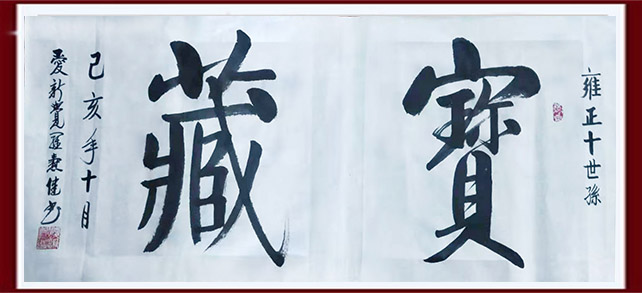 雍正十世孫
寳藏
己亥年十月
愛新覺羅佳书